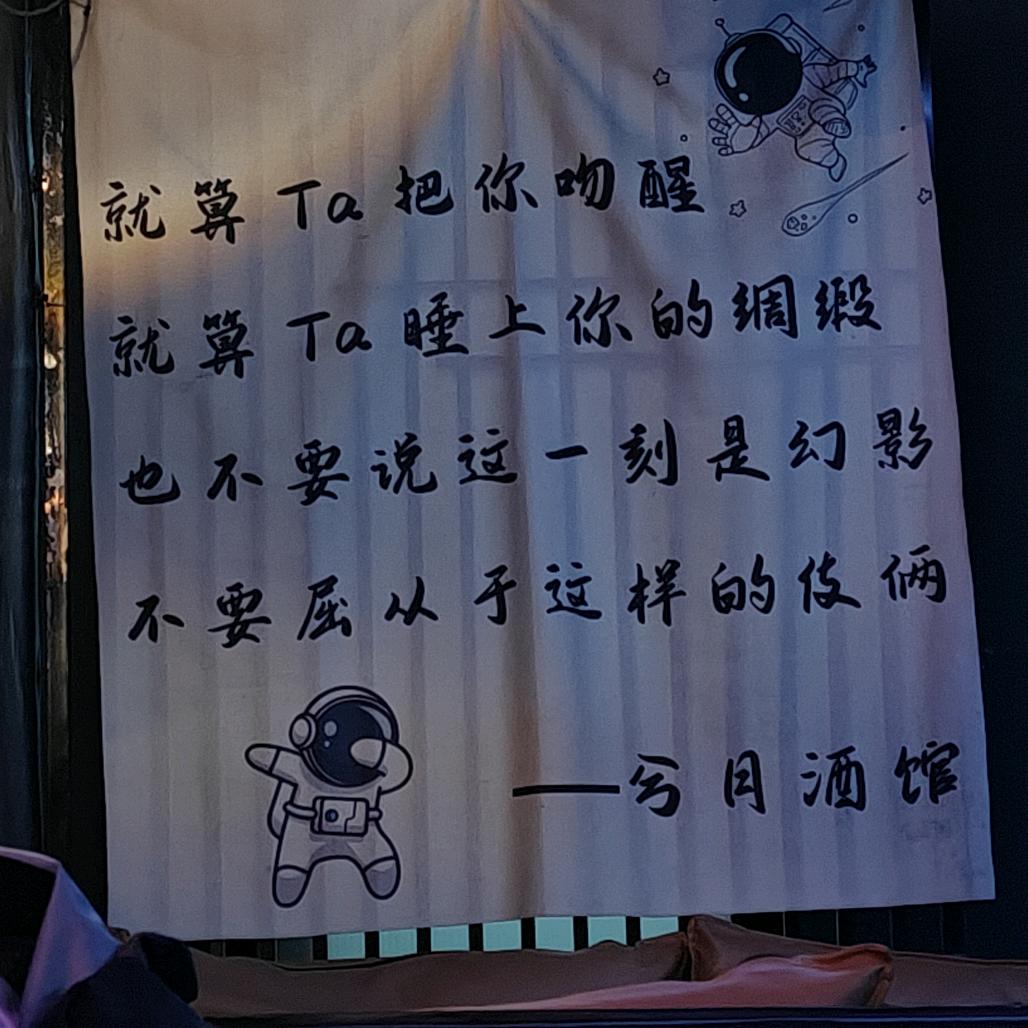 就算Ta把你吻醒
就算Ta睡上你的绸缎
也不要说这一刻是幻影
不要屈从于这样的伎俩
——兮月酒馆